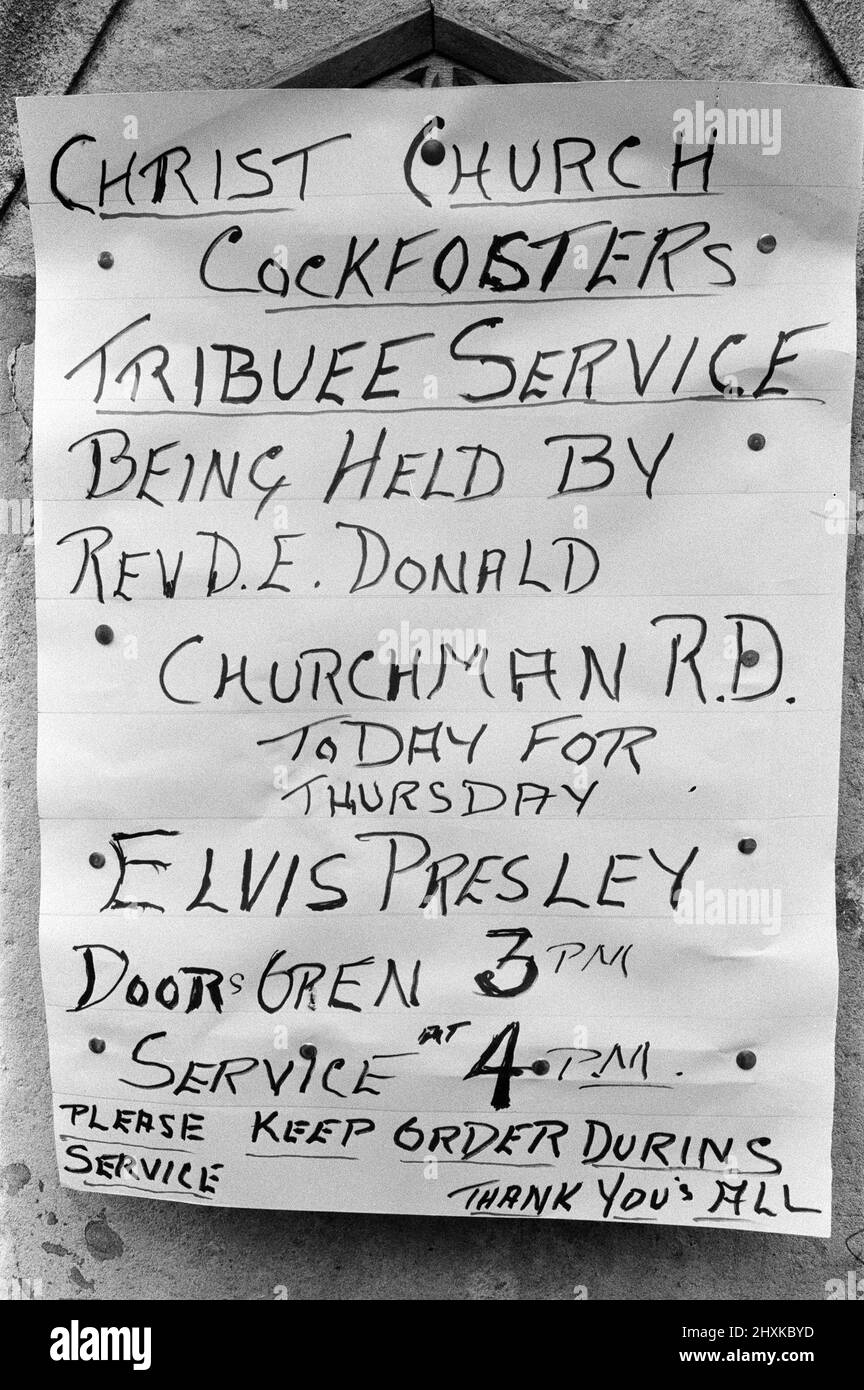 CHRIST CHURCH
COCKFOSTERS
TRIBUEE SERVICE
BEING HELD BY
REV D.E. DONALD
CHURCHMAN R.D.
TODAY FOR
THURSDAY
ELVIS PRESLEY
DOORS OPEN 3 PM
SERVICE AT 4 P.M.
PLEASE KEEP ORDER DURINS
SERVICE
THANK YOU'S ALL
alamy
Image ID: 2HXKBYD
www.alamy.com